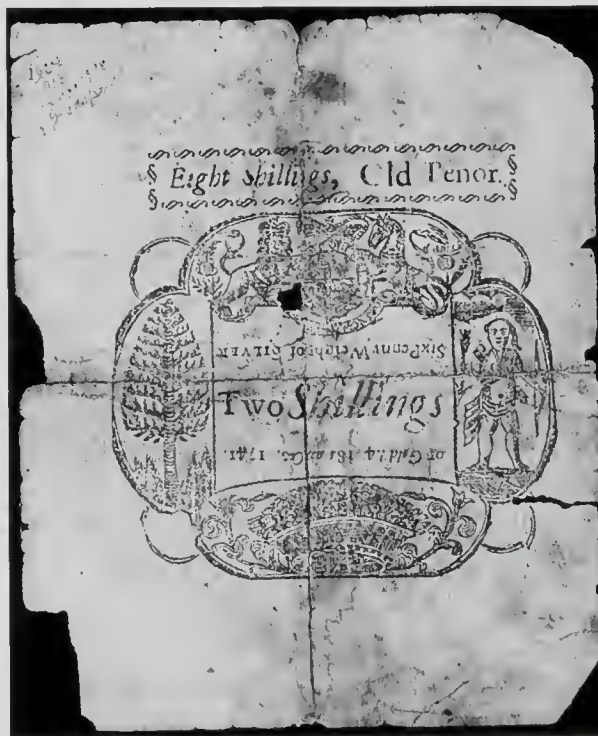 Eight shillings, Old Tenor.
Six Penny Weight of SILVER
Two Shillings
or Gold 1741.